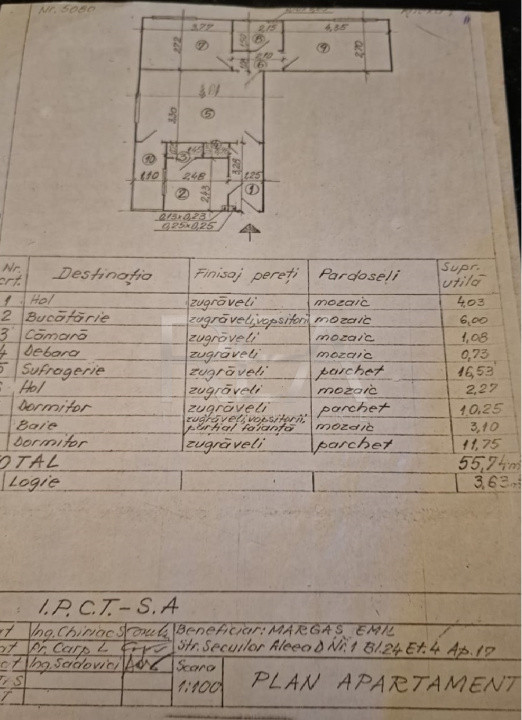 Nr. 5080
3,77
2,15
4,35
2,72
7
8
9
2,70
6
5
3,30
10
3
1,10
2,48
3,28
1,25
2
2,43
1
0,13x0,23
0,25x0,25
Nr. crt. Destinația Finisaj pereți Pardoseli Supr. utilă
1 Hol zugrăveli mozaic 4,03
2 Bucătărie zugrăveli,vopsitorii mozaic 6,00
3 Cămară zugrăveli mozaic 1,08
4 Debara zugrăveli mozaic 0,73
5 Sufragerie zugrăveli parchet 16,53
Hol zugrăveli mozaic 2,27
Dormitor zugrăveli parchet 10,25
Baie zugrăveli,vopsitorii, parțial faianță mozaic 3,10
Dormitor zugrăveli parchet 11,75
OTAL 55,74
Logie 3,63
I.P.C.T.-S.A
Ing. Chiriac S Beneficiar: MARGAS EMIL
Pr. Carp L Str. Secuilor Aleea D Nr.1 Bl.24 Et.4 Ap.17
Ing. Sadovici Scara
1:100 PLAN APARTAMENT